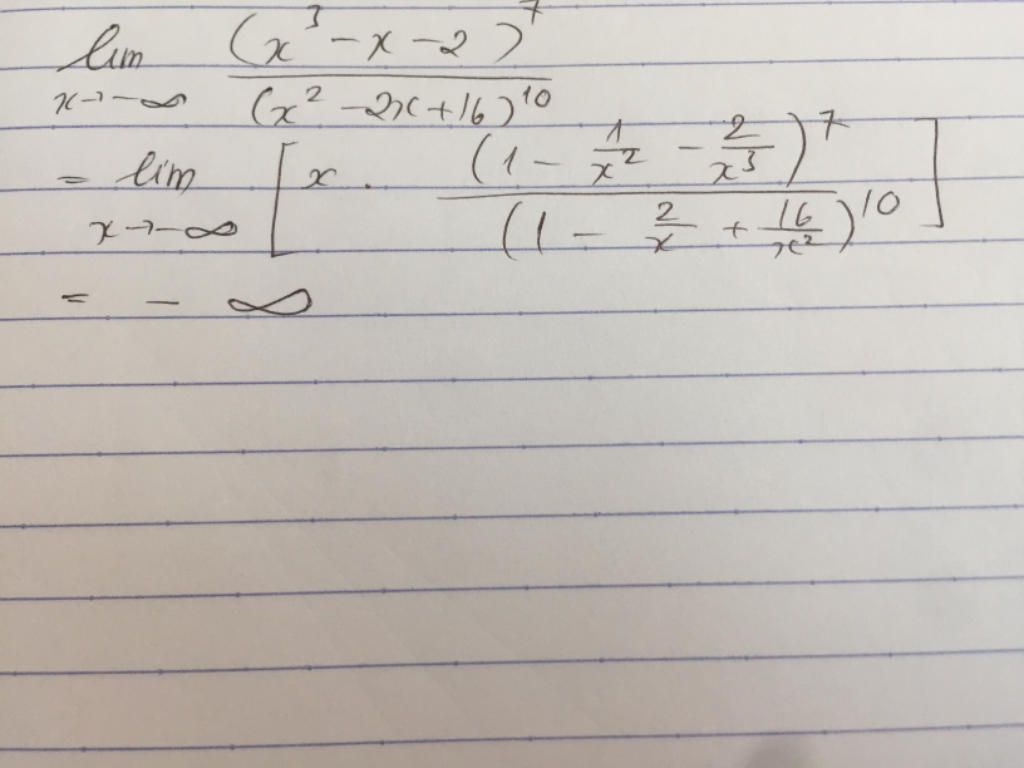 lim (x³ - x - 2)⁷ / (x² - 2x + 16)¹⁰
x → -∞
= lim [x · (1 - 1/x² - 2/x³)⁷ / (1 - 2/x + 16/x²)¹⁰]
x → -∞
= - ∞